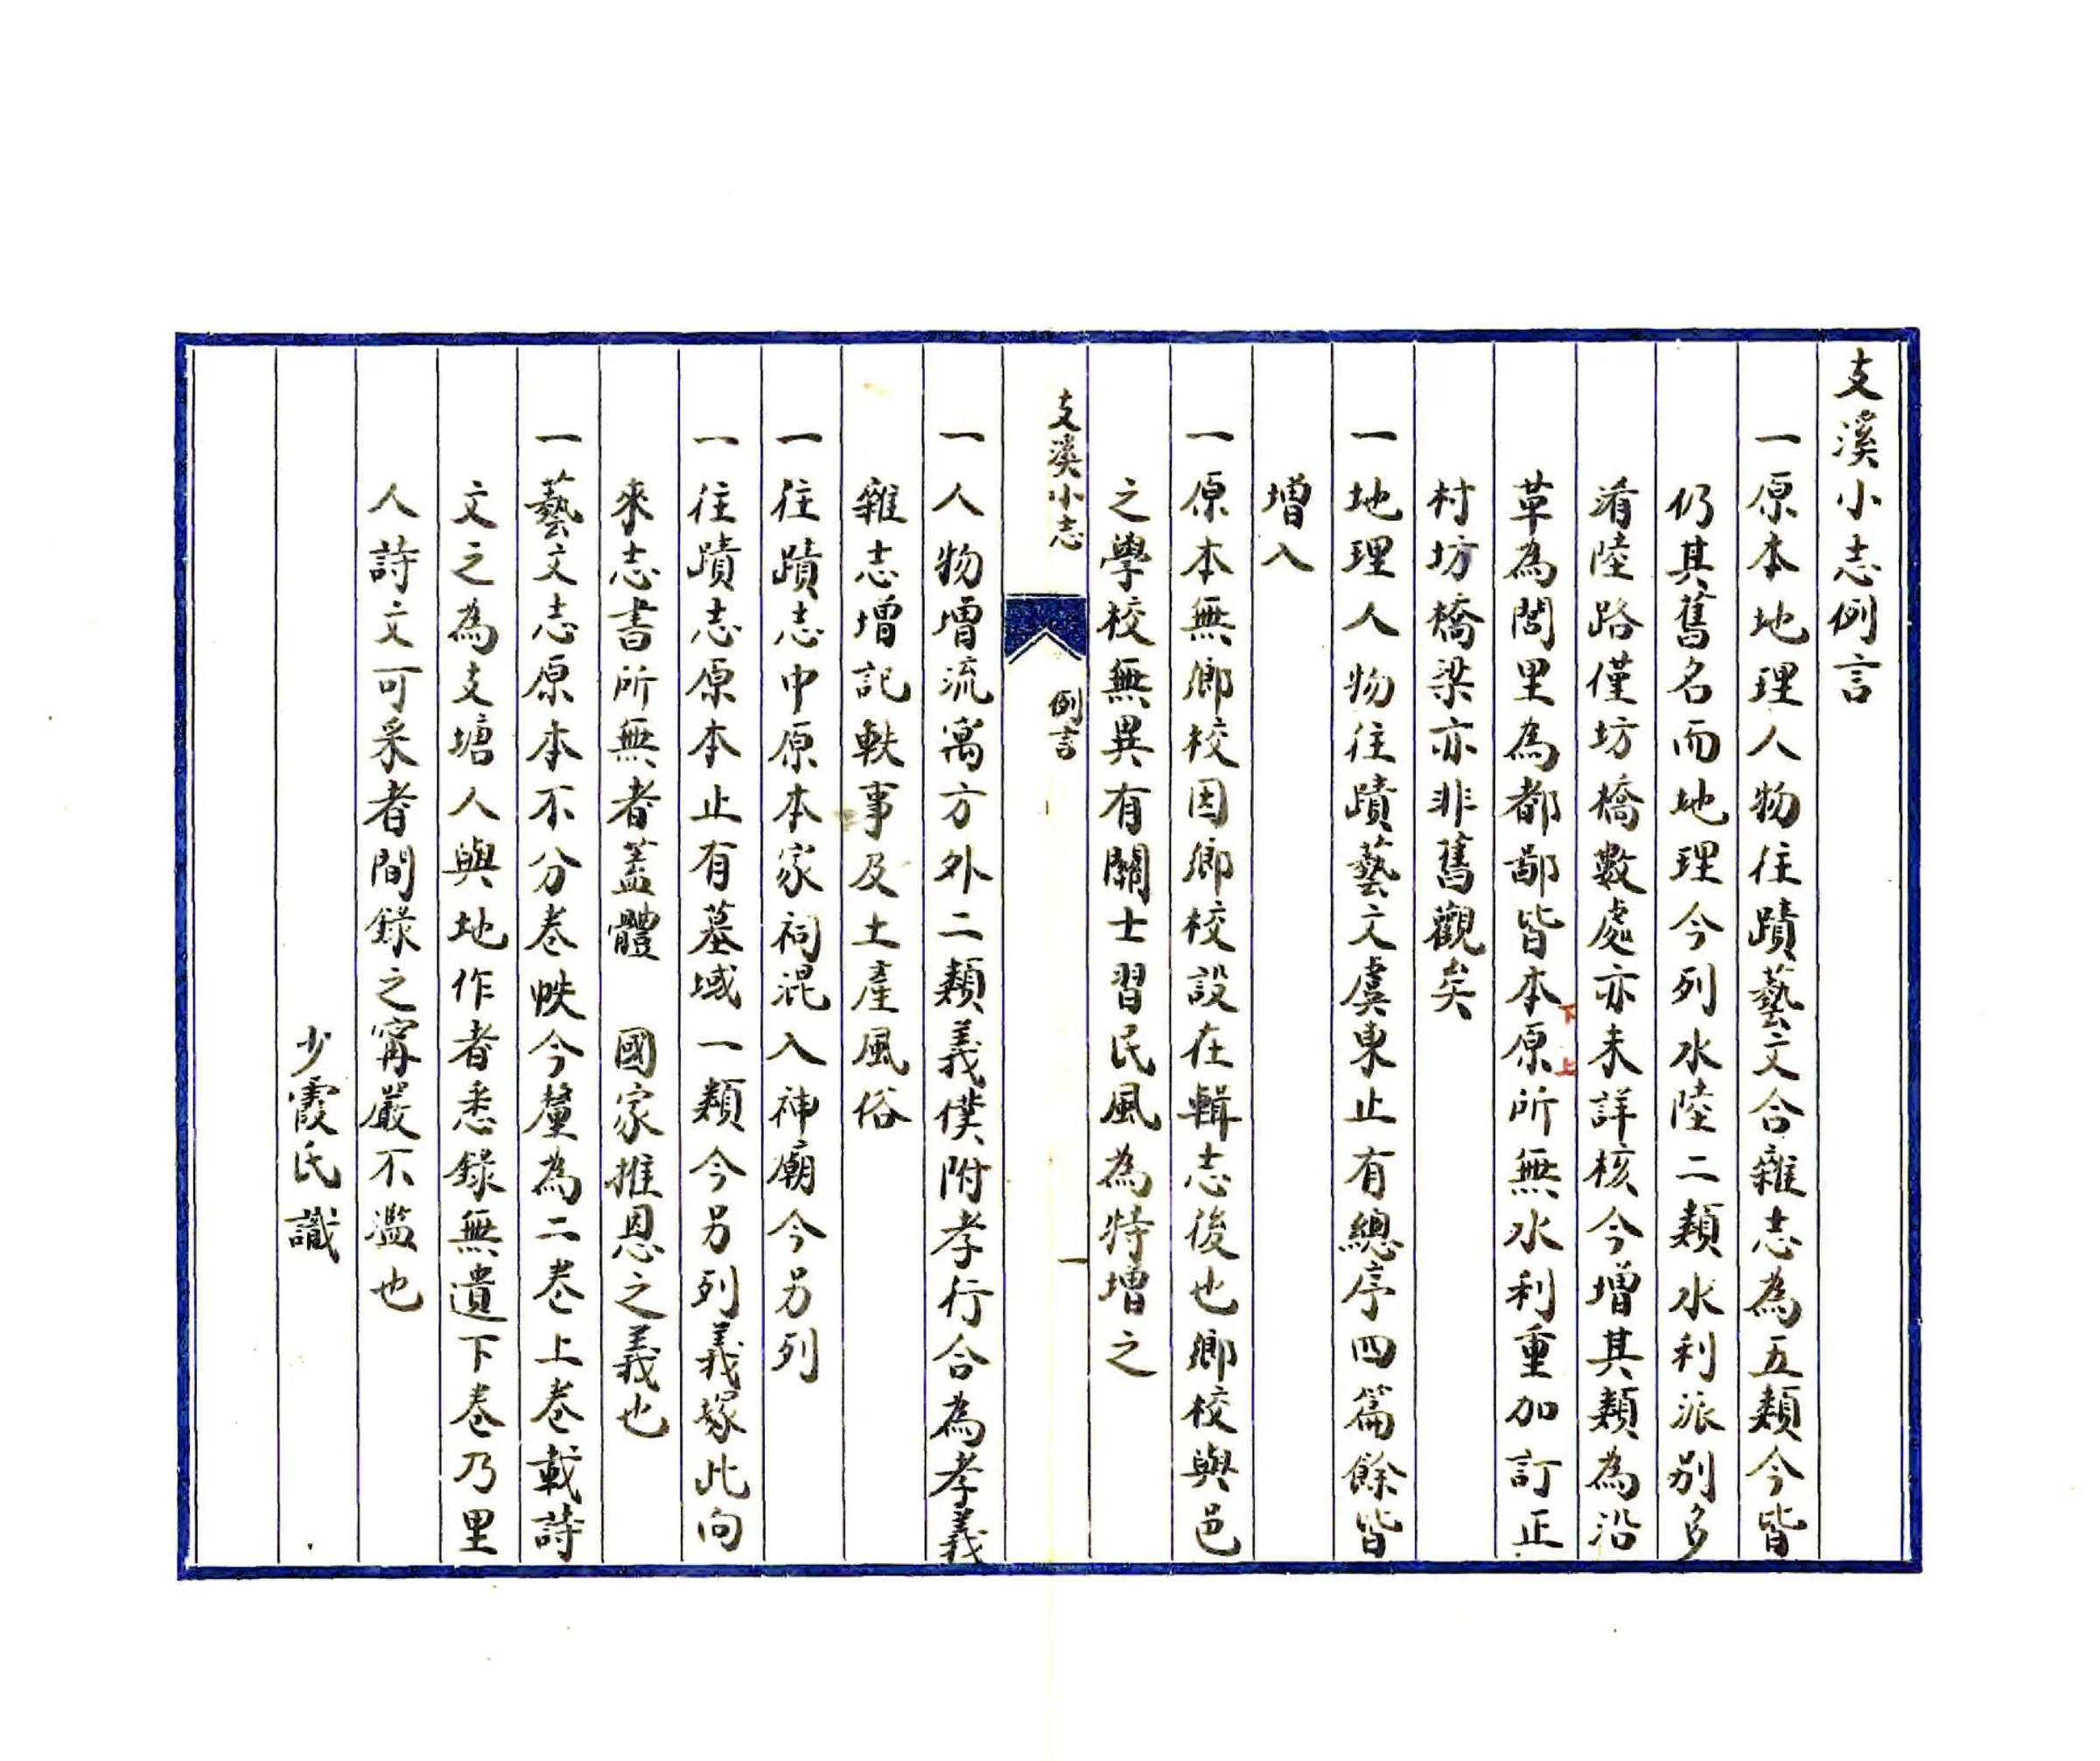 支溪小志例言
一原本地理人物往蹟藝文合雜志為五類今皆
仍其舊名而地理今列水陸二類水利派別多
淆陸路僅坊橋數處亦未詳核今增其類為沿
革為閭里為都鄙皆本原所無水利重加訂正
下
上
村坊橋梁亦非舊觀矣
一地理人物往蹟藝文虞東止有總序四篇餘皆
增入
一原本無鄉校因鄉校設在輯志後也鄉校與邑
之學校無異有關士習民風為特增之
支溪小志
例言
一
一人物增流寓方外二類義僕附孝行合為孝義
雜志增記軼事及土產風俗
一往蹟志中原本家祠混入神廟今另列
一往蹟志原本止有墓域一類今另列義塚此向
來志書所無者蓋體　國家推恩之義也
一藝文志原本不分卷帙今釐為二卷上卷載詩
文之為支塘人與地作者悉錄無遺下卷乃里
人詩文可采者間錄之寗嚴不濫也
少霞氏識